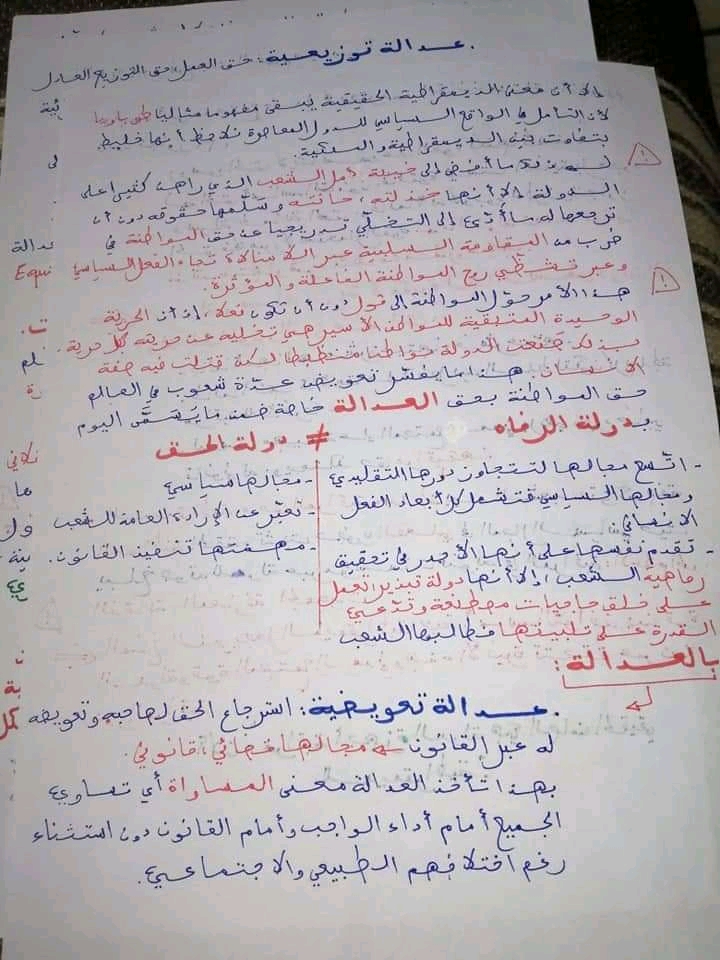 . عدالة توزيعية: حق العمل، حق التوزيع العادل
إلا أن معنى الديمقراطية الحقيقية يبقى مفهوما مثاليا طوباويا
لأن التأمل في الواقع السياسي للدول المعاصرة نلاحظ أنها خليط
بتفاوت بين الديمقراطية والملكية.
الشعب الذي راهن كثيرا على
الدولة إلا أنها خذلته، خانته وسلبها حقوقه دون أن
ترجعها له مما أدى إلى التخلي تدريجيا عن حق المواطنة في
ضرب من المقاومة السلبية عبر اللامبالاة تجاه الفعل السياسي
وعبر تشظي روح المواطنة الفاعلة والمؤثرة.
هذا الأمر حوّل المواطنة إلى قول دون أن تكون فعلا، إذ أن الحرية
الوحيدة المتبقية للمواطن الأسير هي تخليه عن حريته كل حرية.
بذلك صنعت الدولة مواطنا منضبطا لكنه قتلت فيه صفة
الإنسان. هذا ما يفسّر تعويض عدّة شعوب في العالم
حق المواطنة بحق العدالة خاصة ضمن ما يسمّى اليوم
بدولة الرفاه ≠ دولة الحق
- اتسع مجالها لتتجاوز دورها التقليدي
ومجالها السياسي فتشمل كل أبعاد الفعل
الإنساني
- تقدم نفسها على أنها الأجدر في تحقيق
رفاهية الشعب، إلا أنها دولة تبذير تعمل
على خلق حاجيات مصطنعة وتدّعي
القدرة على تلبيتها فطالبها الشعب
- مجالها سياسي
- تعبّر عن الإرادة العامة للشعب
- مهمتها تنفيذ القانون.
بالعدالة:
. عدالة تعويضية: استرجاع الحق لصاحبه وتعويضه
له عبر القانون مجالها قضائي، قانوني.
بهذا تأخذ العدالة معنى المساواة أي تساوي
الجميع أمام أداء الواجب وأمام القانون دون استثناء
رغم اختلافهم الطبيعي والاجتماعي.
دالة
Equi